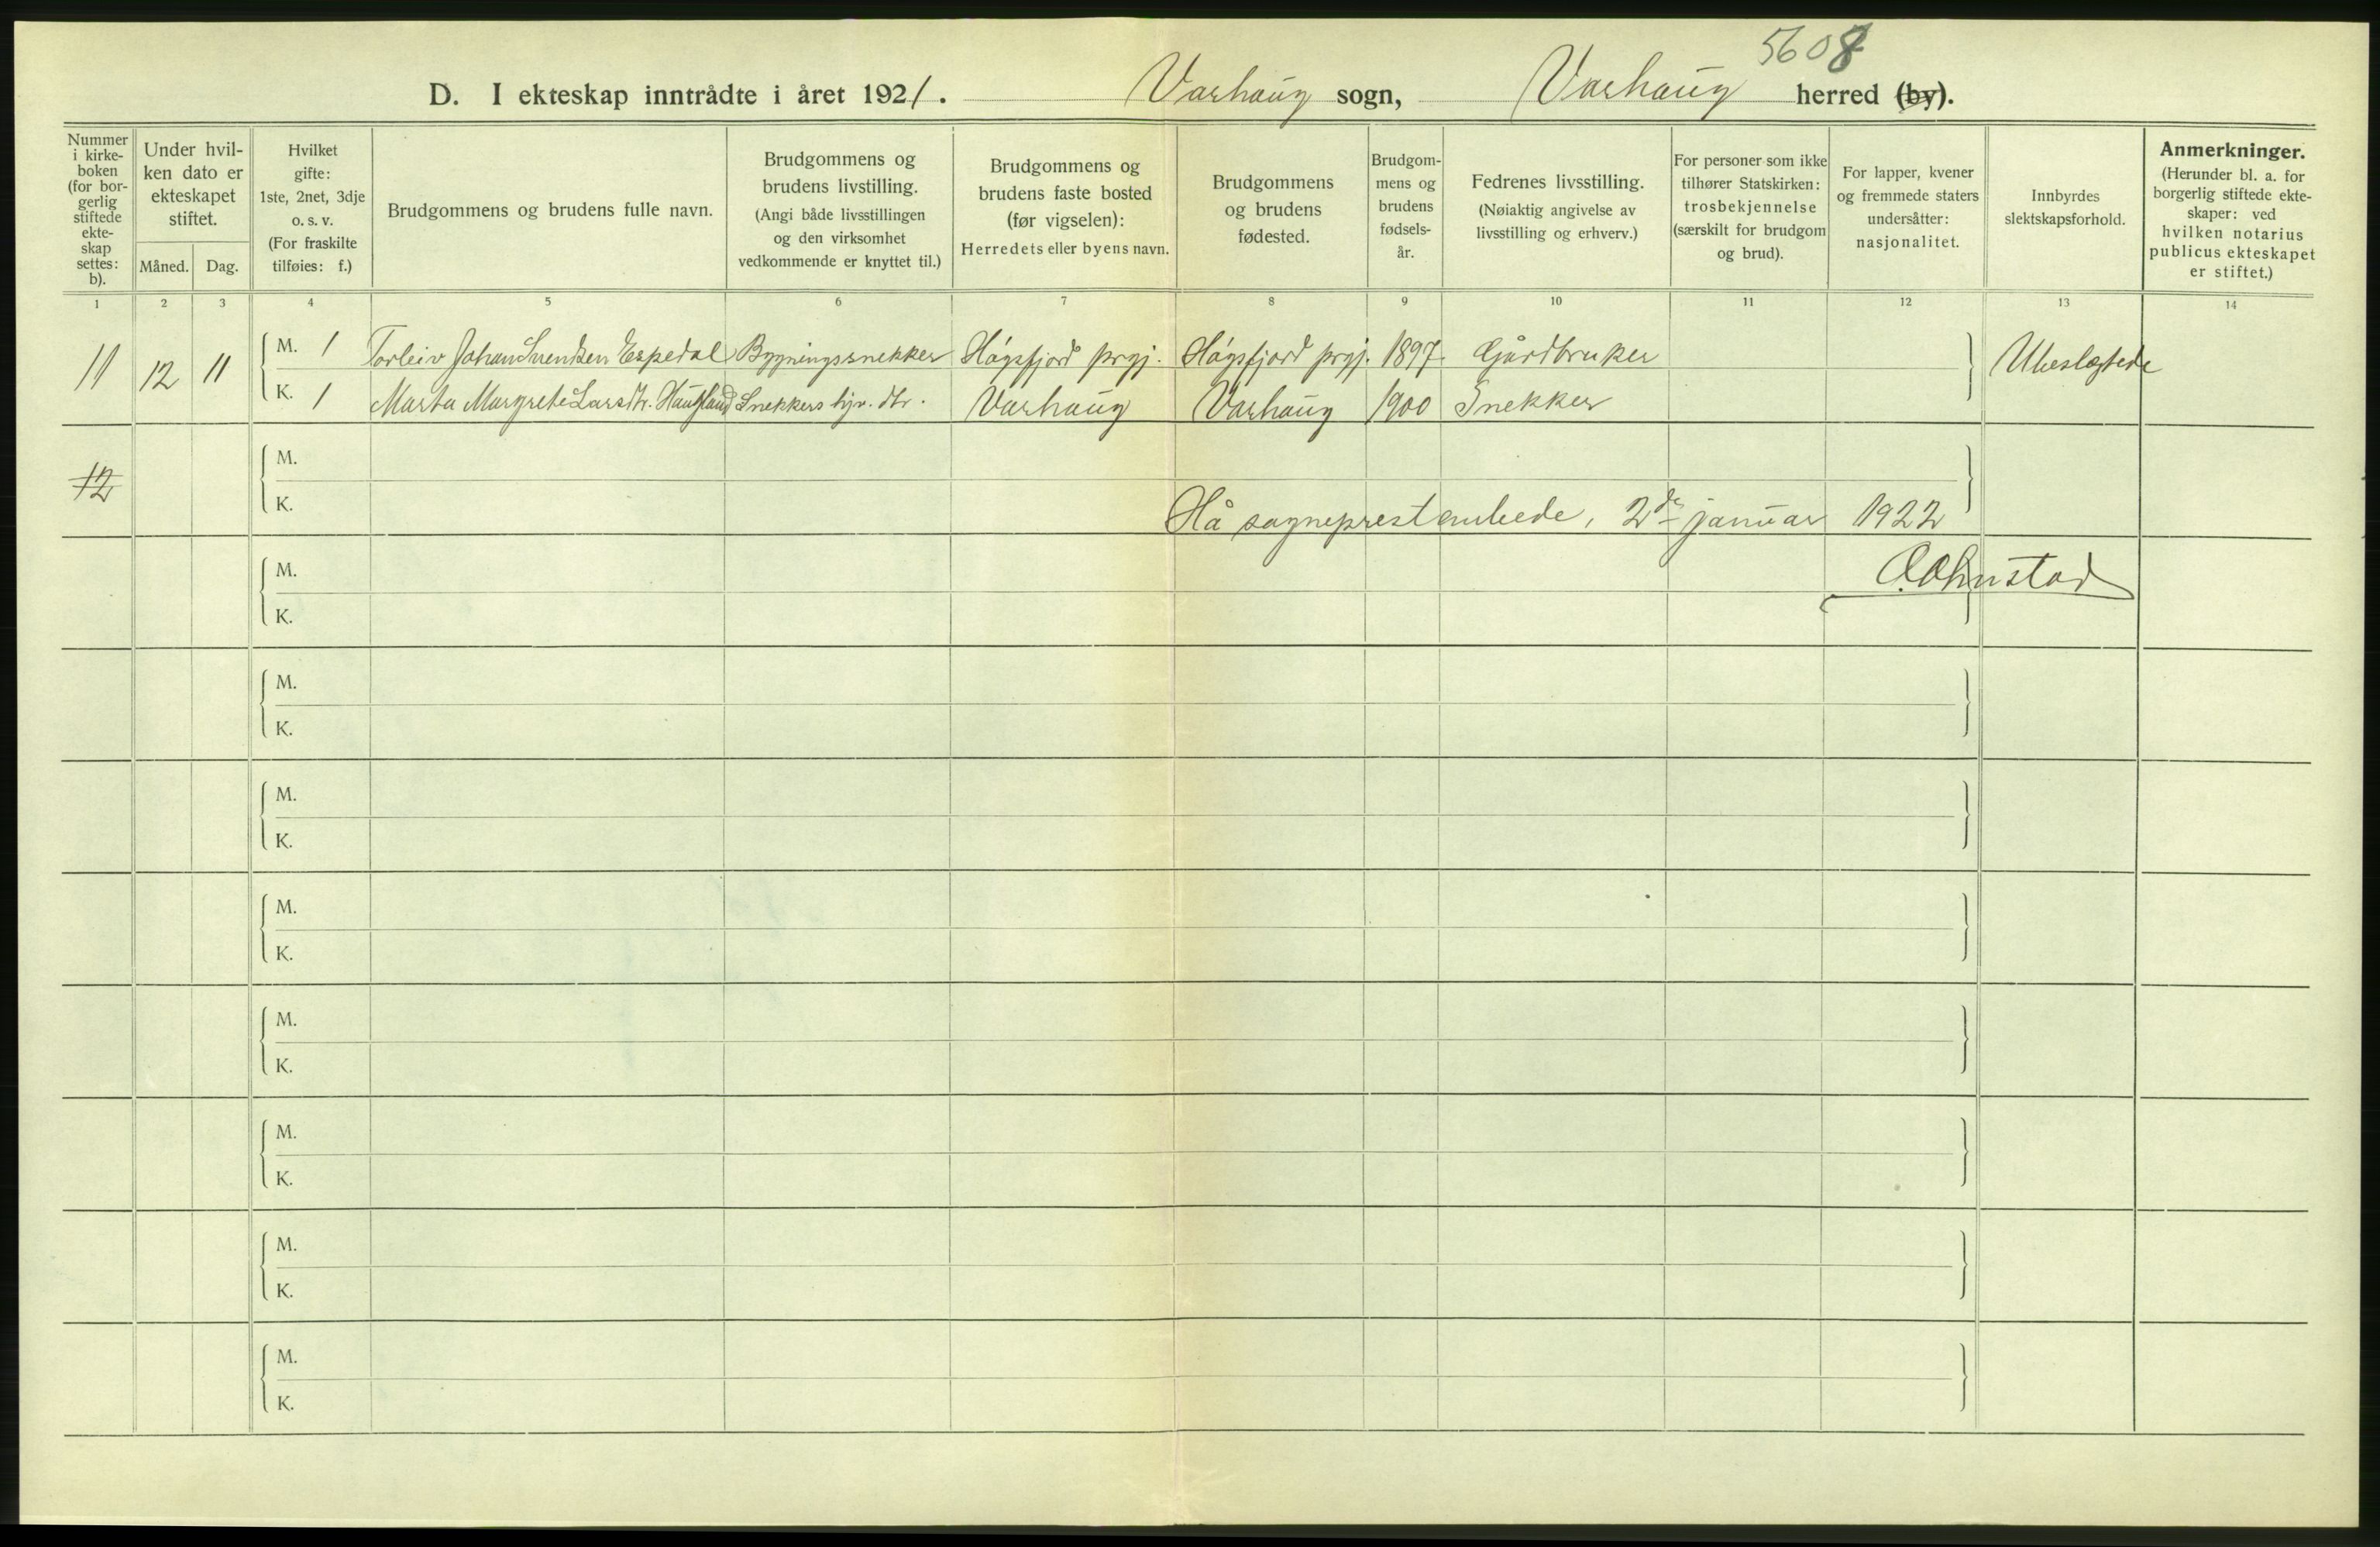 5608
D. I ekteskap inntrådte i året 1921. Varhaug sogn, Varhaug herred (by).
Nummer i kirke-boken (for bor-gerlig stiftede ekte-skap settes: b).
Under hvil-ken dato er ekteskapet stiftet.
Måned. Dag.
Hvilket gifte: 1ste, 2net, 3dje o. s. v. (For fraskilte tilføies: f.)
Brudgommens og brudens fulle navn.
Brudgommens og brudens livstilling. (Angi både livsstillingen og den virksomhet vedkommende er knyttet til.)
Brudgommens og brudens faste bosted (før vigselen): Herredets eller byens navn.
Brudgommens og brudens fødested.
Brudgom-mens og brudens fødsels-år.
Fedrenes livsstilling. (Nøiaktig angivelse av livsstilling og erhverv.)
For personer som ikke tilhører Statskirken: trosbekjennelse (særskilt for brudgom og brud).
For lapper, kvener og fremmede staters undersåtter: nasjonalitet.
Innbyrdes slektskapsforhold.
Anmerkninger. (Herunder bl. a. for borgerlig stiftede ekte-skaper: ved hvilken notarius publicus ekteskapet er stiftet.)
1 2 3 4 5 6 7 8 9 10 11 12 13 14
11 12 11 M. 1 Torleiv Johan Svendsen Espedal Bygningssnekker Høgsfjord prgj. Høgsfjord prgj. 1897 Gårdbruker Ubeslegtede
K. 1 Marta Margrete Larsdtr. Haugland Snekkers hjv. dtr. Varhaug Varhaug 1900 Snekker
12 M.
K. Hå sogneprestembede, 2de januar 1922
M.
K.
M.
K.
M.
K.
M.
K.
M.
K.
M.
K.
M.
K.
M.
K.